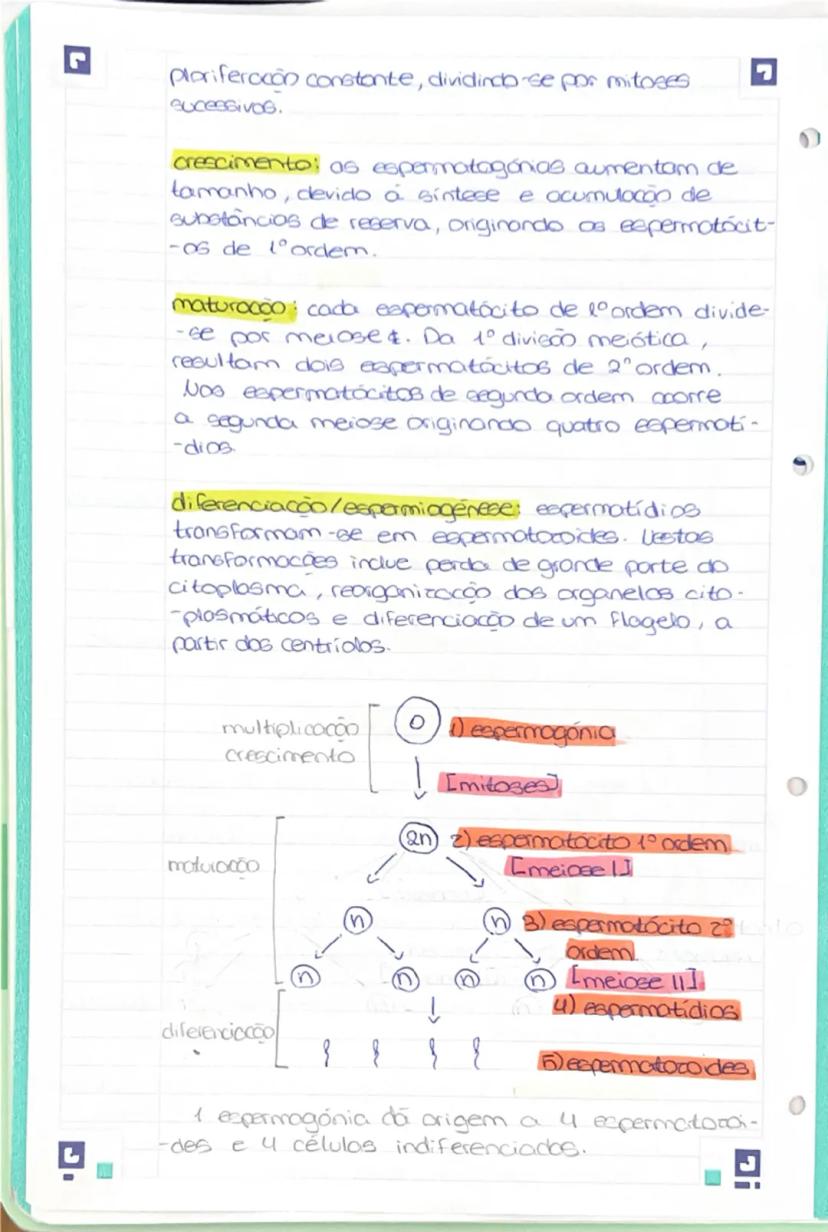 ploriferação constante, dividindo-se por mitoses
sucessivas.
crescimento: as espermatogónias aumentam de
tamanho, devido á síntese e acumulação de
substâncias de reserva, originando os espermatócit-
-os de 1º ordem.
maturação: cada espermatócito de 1º ordem divide-
-se por meiose I. Da 1º divisão meiótica,
resultam dois espermatócitos de 2º ordem.
Nos espermatócitos de segunda ordem ocorre
a segunda meiose originando quatro espermatí-
-dios.
diferenciação/espermiogénese: espermatídios
transformam-se em espermatozoides. Nestas
transformações inclue perda de grande parte do
citoplasma, reorganização dos organelos cito-
-plasmáticos e diferenciação de um flagelo, a
partir dos centríolos.
multiplicação
crescimento
1) espermogónia
[mitoses]
2n 2) espermatócito 1º ordem
maturação
[meiose I]
n n 3) espermatócito 2º
ordem
n n n n [meiose II]
4) espermatídios
diferenciação
5) espermatozoides
1 espermogónia dá origem a 4 espermatozoi-
-des e 4 células indiferenciadas.